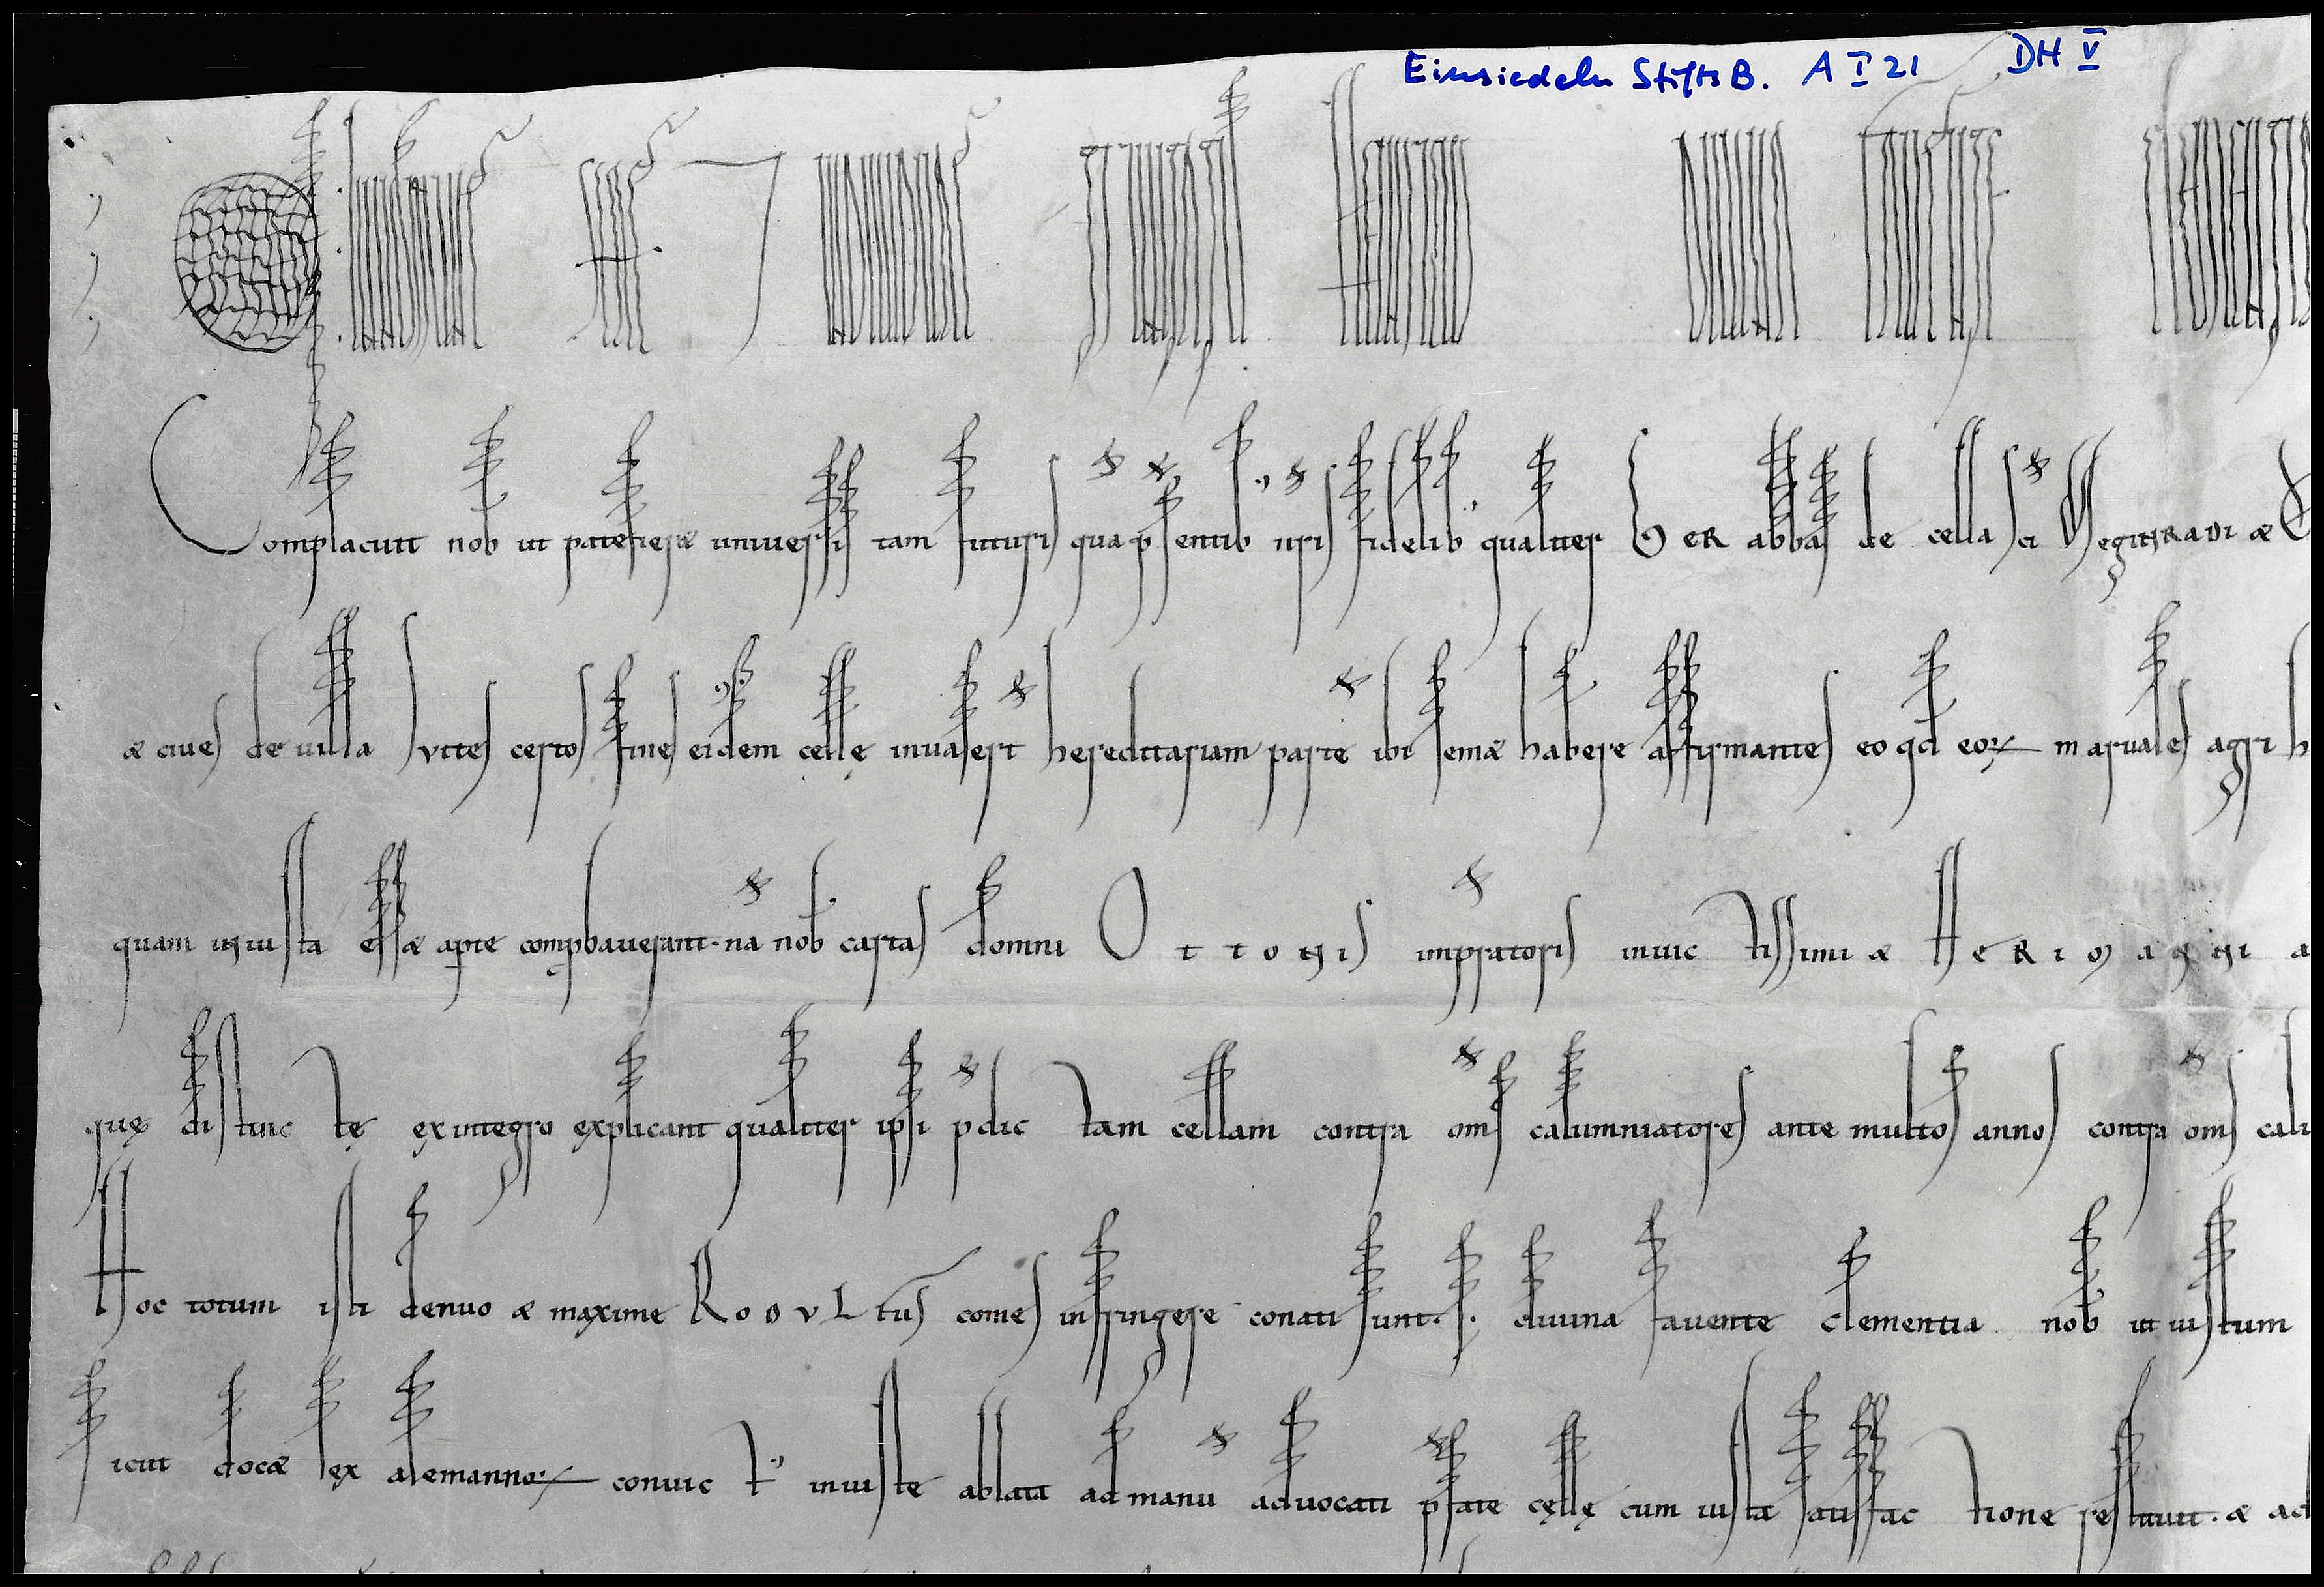 Einsiedeln StiftsB. A I 21 DH V
C IN NOMINE SCE ET INDIVIDUE TRINITATIS HEINRICUS DIVINA
Complacuit nob ut patefieret universis tam futuris qua psentib nris fidelib qualiter GER abbas de cella sci MegiNRADI et
et cives de villa Svites certos fines eidem cellę invasert hereditariam parte ibi semet habere affirmantes eo qd eoꝝ in arvales agri
quam iniusta esset apte compbaverant. na nob cartas domni OttoNis impratoris invictissimi et HeRI MagNi a
quę distincte ex integro explicant qualiter ipsi pdictam cellam contra oms calumniatores ante multos annos contra oms calu
Hoc totum isti denuo et maxime RODVLtus comes infringere conati sunt. S. divina favente clementia nob ut iustum
sicut docet lex alemannoꝝ convict' iniuste ablata ad manu advocati pfate cęllę cum iusta satisfactione restituit. et